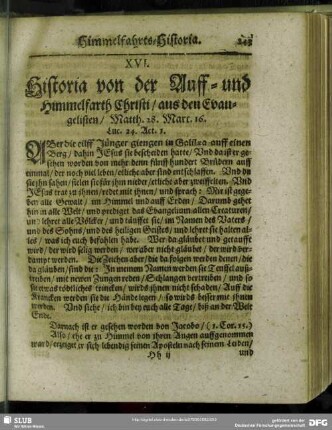 Himmelfahrts-Historia. 243
XVI.
Historia von der Auff- und
Himmelfarth Christi / aus den Evan-
gelisten / Matth. 28. Marc. 16.
Luc. 24. Act. 1.
ABer die eilff Jünger giengen in Galilæa auff einen
Berg / dahin JEsus sie bescheiden hatte / Und da ist er ge-
sehen worden von mehr denn fünff hundert Brüdern auff
einmal / der noch viel leben / etliche aber sind entschlaffen. Und da
sie ihn sahen / fielen sie für ihm nieder / etliche aber zweiffelten. Und
JEsus trat zu ihnen / redet mit ihnen / und sprach: Mir ist gege-
ben alle Gewalt / im Himmel und auff Erden / Darumb gehet
hin in alle Welt / und prediget das Evangelium allen Creaturen /
und lehret alle Völcker / und täuffet sie / im Namen des Vaters
und des Sohns / und des heiligen Geistes / und lehret sie halten al-
les / was ich euch befohlen habe. Wer da gläubet und getaufft
wird / der wird selig werden / wer aber nicht gläubet / der wird ver-
dampt werden. Die Zeichen aber / die da folgen werden denen / die
da gläuben / sind die: In meinem Namen werden sie Teuffel auß-
treiben / mit neuen Zungen reden / Schlangen vertreiben / und so
sie etwas tödtliches trincken / wirds ihnen nicht schaden / Auff die
Krancken werden sie die Hände legen / so wirds besser mit ihnen
werden. Und siehe / ich bin bey euch alle Tage / biß an der Welt
Ende.
Darnach ist er gesehen worden von Jacobo / (1. Cor. 15.)
Also / ehe er zu Himmel von ihren Augen auffgenommen
ward / erzeiget er sich lebendig seinen Aposteln nach seinem Leiden /
Hh ij und
SLUB
Wir führen Wissen.
gefördert von der
Deutschen Forschungsgemeinschaft
DFG